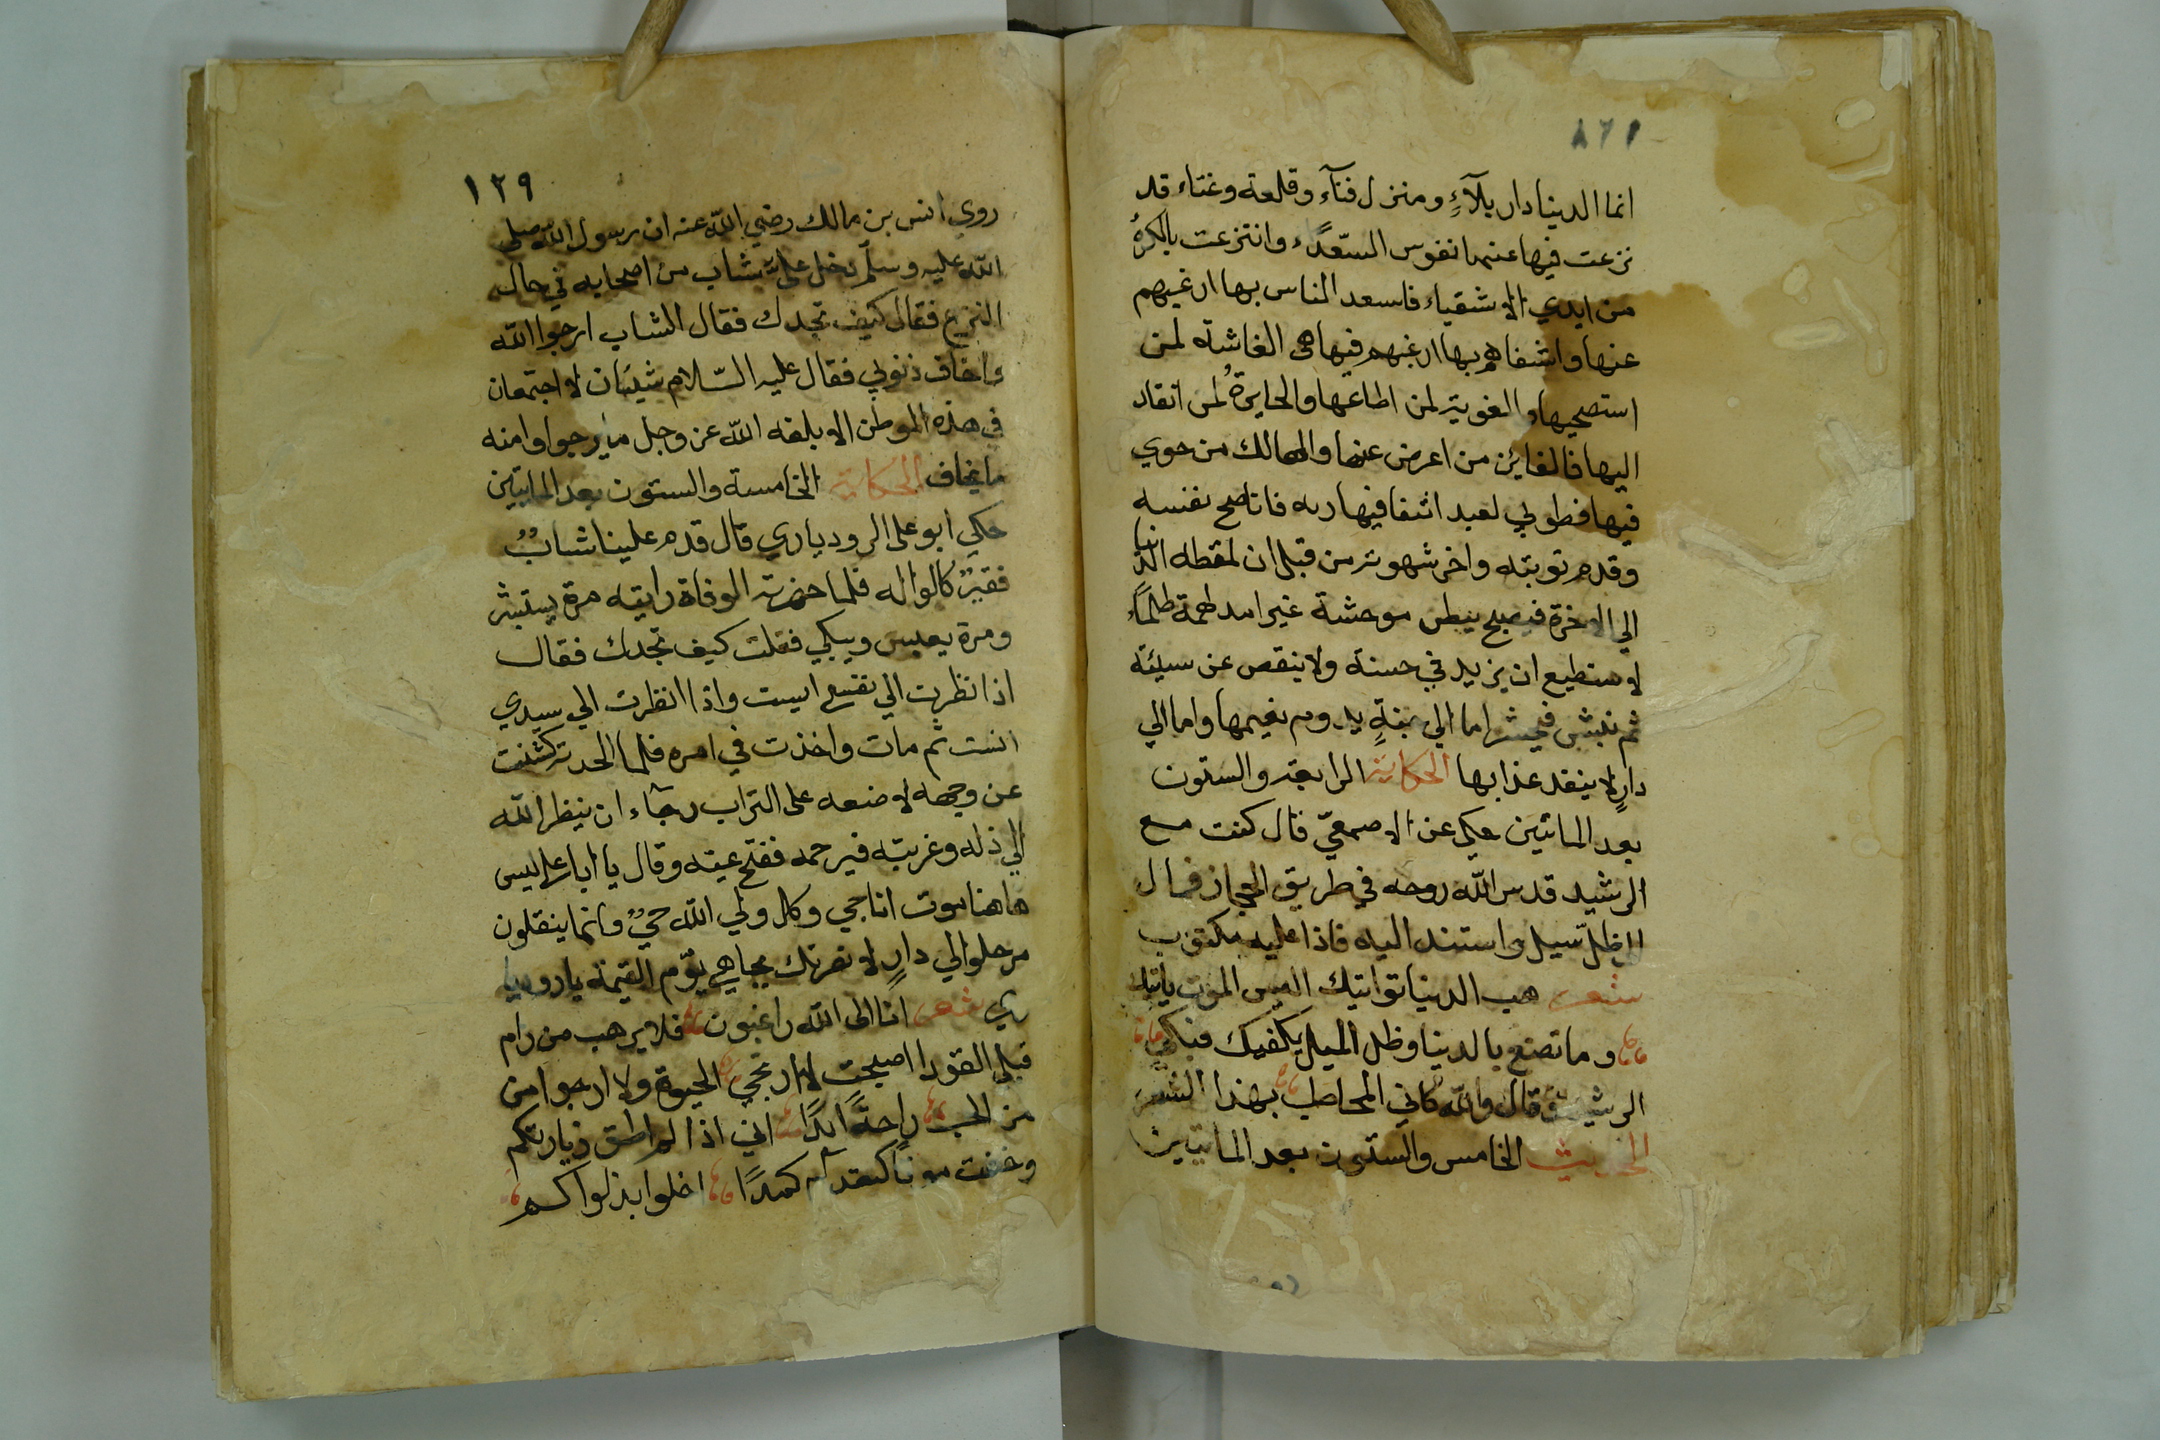 ١٢٨
انما الدنيا دار بلآءٍ ومنزل فنآء وقلعة وغناء قد
نزعت فيها عنها نفوس السعدآء وانتزعت بالكرهُ
من ايدي الاشقياء فاسعد الناس بها ارغبهم
عنها واشقاهم بها ارغبهم فيها هى الغاشة لمن
استصحبها والمغوية لمن اطاعها والحايرةُ لمن انقاد
اليها فالفايزن من اعرض عنها والهالك من هوي
فيها فطوبي لعبد اتقا فيها ربه فناصح نفسه
وقدم توبته واخر شهوته من قبل ان لفظه الدنيا
الي الاخرة فيصبح ببطن موحشة غبرا مدلهمة ظلمآء
لا ستطيع ان يزيد في حسنة ولا ينقص عن سيئة
ثم ينشى فيحشر اما الي جنةٍ يدوم نعيمها واما الي
دارٍ لا ينفد عذابها الحكاية الرابعة والستون
بعد الماتين حكي عن الاصمعيّ قال كنت مع
الرشيد قدس الله روحه في طريق الحجاز فمال
الي ظلّ ميل واستند اليه فاذا عليه مكتوب
شعر هب الدنيا تواتيك اليس الموت ياتيك
وما تصنع بالدنيا وظل الميل يكفيك فبكي
الرشيد وقال والله كاني المخاطب بهذا الشعر
الحديث الخامس والستون بعد الماتين
١٢٩
روي انس بن مالك رضي الله عنه ان رسول الله صلي
الله عليه وسلّم دخل علي شاب من اصحابه في حال
النزع فقال كيف تجدك فقال الشاب ارجوا الله
واخاف ذنوبي فقال عليه السّلام شيئان لا اجتمعان
في هذه الموطن الا بلغه الله عن وجل ما يرجوا وامنه
ما يخاف الحكاية الخامسة والستون بعد الماتين
حكي ابو على الرودباري قال قدم علينا شابٌ
فقيرٌ كالواله فلما حضرته الوفاة رايته مرة يستبشر
ومرة يعبس ويبكي فقلت كيف تجدك فقال
اذا نظرت الي نفسي ايست واذا انظرت الي سيدي
انست ثم مات واخذت في امره فلما الحدته كشفت
عن وجهه لاضعه على التراب رجآء ان ينظر الله
الي ذله وغربته فيرحمه ففتح عينه وقال يا ابا علي ليس
هاهنا موت انا حي وكل ولي الله حيٌ وانما ينقلون
من حلوالي دارٍ لانصرنك بجاهي يوم القيمة يا رودبا
ري شعر انا الى الله راغبون فلا يرهب من رام
قبل القودا اصبحت لا ارتجي الحيوة ولا ارجوا من
من الحب راحةً ابدًا اني اذا لم اطق زيارتكم
وخفت موتا كمدًا اخلوا بذكراكم